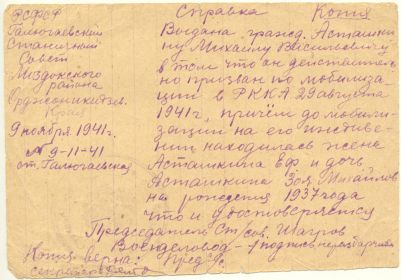 РСФСР
Галюгаевский
Станичный
Совет
Моздокского
района
Орджоникидзев.
Края
9 ноября 1941 г.
№ 9-11-41
ст. Галюгаевская
Справка Копия
Выдана гражд. Асташки
ну Михаилу Васильевичу
в том что он действитель
но призван по мобилиза
ции в РККА 29 августа
1941 г., причём до мобили-
зации на его иждиве-
нии находилась жена
Асташкина ЕФ и дочь
Асташкина Зоя Михайлов
на рождения 1937 года
что и удостоверяется
Председатель Ст/сов. Шагров
Военделовод - подпись неразборчива
Копия верна: Пред
секретарь